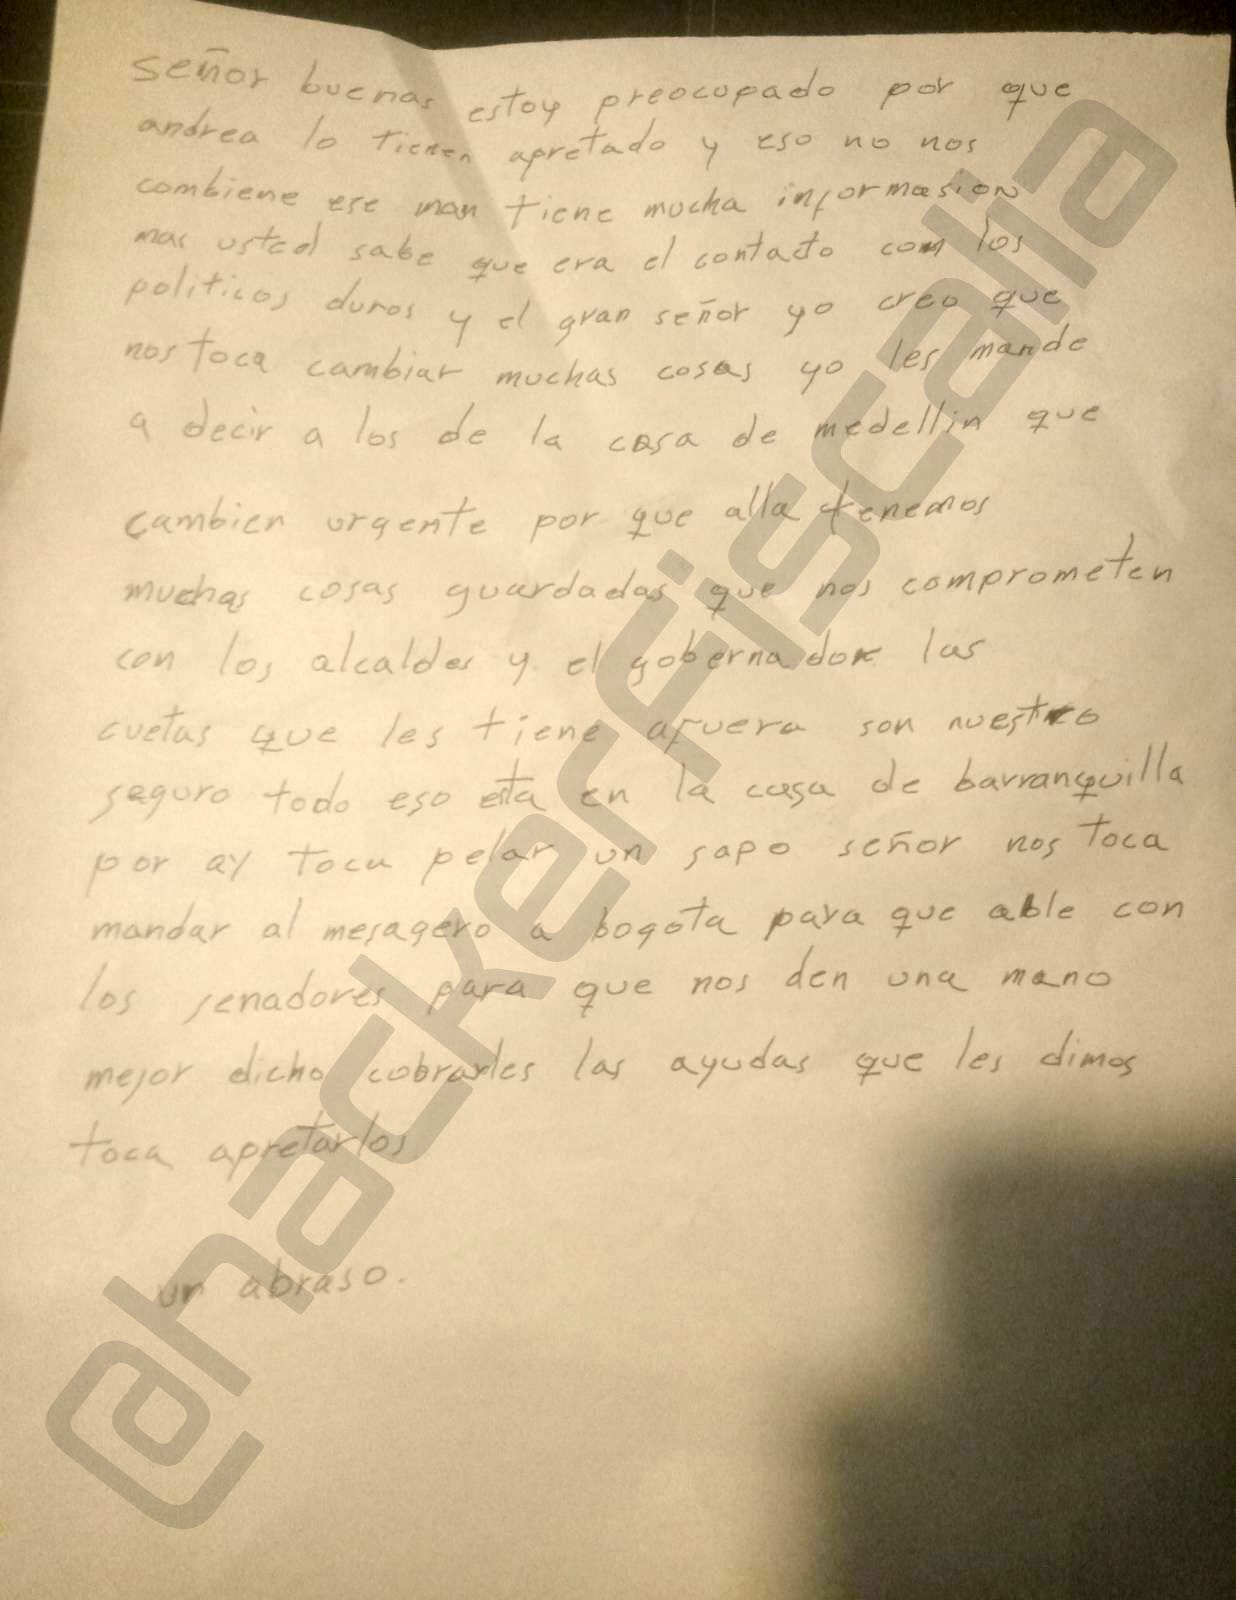 señor buenas estoy preocupado por que
andrea lo tienen apretado y eso no nos
combiene ese man tiene mucha informasion
mas usted sabe que era el contacto com los
politicos duros y el gran señor yo creo que
nos toca cambiar muchas cosas yo les mande
a decir a los de la casa de medellin que
cambien urgente por que alla tenemos
muchas cosas guardadas que nos comprometen
con los alcaldes y el gobernador las
cuetas que les tiene afuera son nuestro
seguro todo eso esta en la casa de barranquilla
por ay toca pelar un sapo señor nos toca
mandar al mesagero a bogota para que able con
los senadores para que nos den una mano
mejor dicho cobrarles las ayudas que les dimos
toca apretarlos
un abraso.
@hackerfiscalia